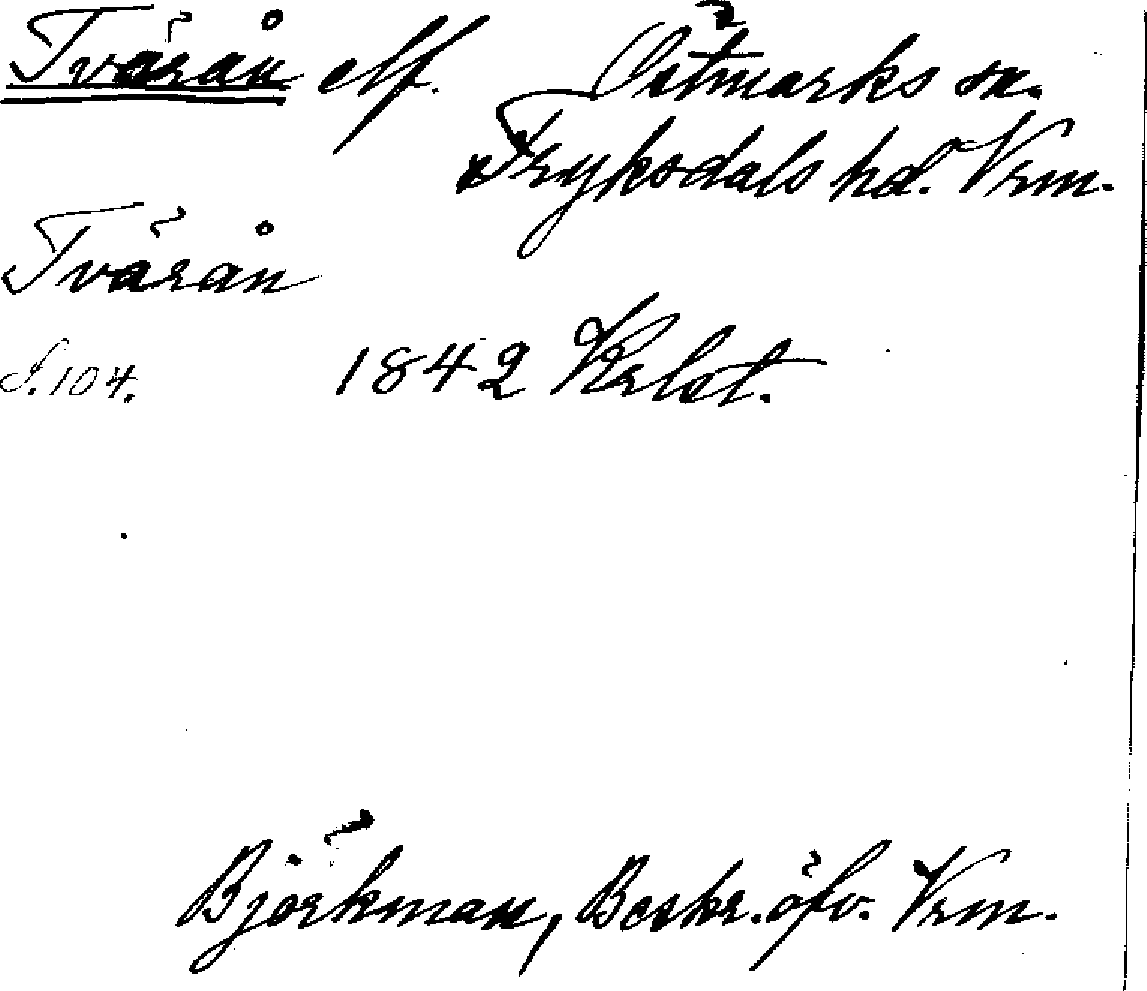 Tvärån elf. Östmarks sn.
Fryksdals hd. Vrm.
Tvärån
S. 104. 1842 Krlst.
Björkman, Beskr. öfv. Vrm.